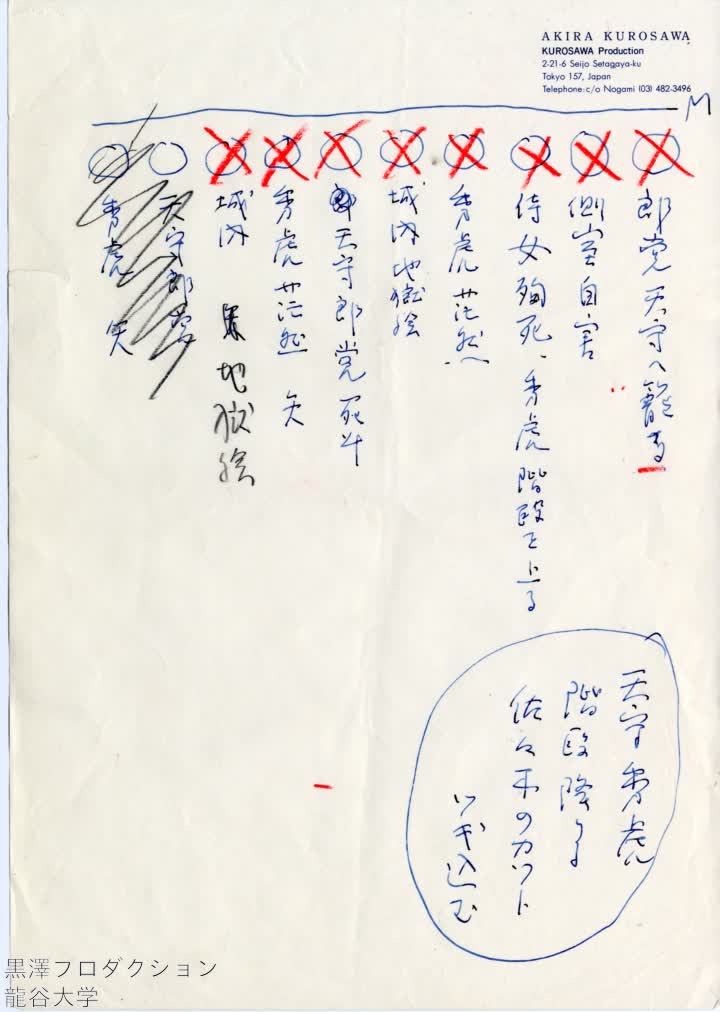 AKIRA KUROSAWA
KUROSAWA Production
2-21-6 Seijo Setagaya-ku
Tokyo 157, Japan
Telephone: c/o Nogami (03) 482-3496
郎党天守へ籠る
側室自害
侍女殉死、秀虎階段を上る
秀虎茫然
城内地獄絵
天守郎党死斗
秀虎茫然 矢
城内 地獄絵
天守郎党
秀虎 矢
天守秀虎
階段降りる
佐々木のカット
ツギ込む
黒澤プロダクション
龍谷大学